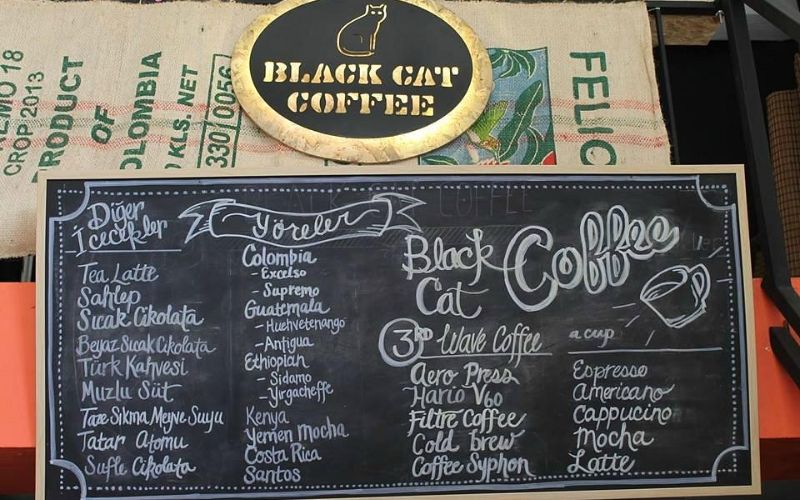 BLACK CAT
COFFEE
CROP 2013
PRODUCT
OF
KLS. NET
330
0056
FELIC
Diğer
İcecekler
Tea Latte
Sahlep
Sıcak Cikolata
Beyaz Sıcak Cikolata
Türk Kahvesi
Muzlu Süt
Taze Sıkma Meyve Suyu
Tatar Atomu
Sufle Cikolata
Yöreler
Colombia
- Excelso
- Supremo
Guatemala
- Huehvetenango
- Antigua
Ethiopian
- Sidamo
- Yirgacheffe
Kenya
Yemen Mocha
Costa Rica
Santos
Black
Cat
Coffee
3RD Wave Coffee
Aero Press
Hario V60
Filtre Coffee
Cold brew
Coffee Syphon
a cup
Espresso
Americano
Cappucino
Mocha
Latte